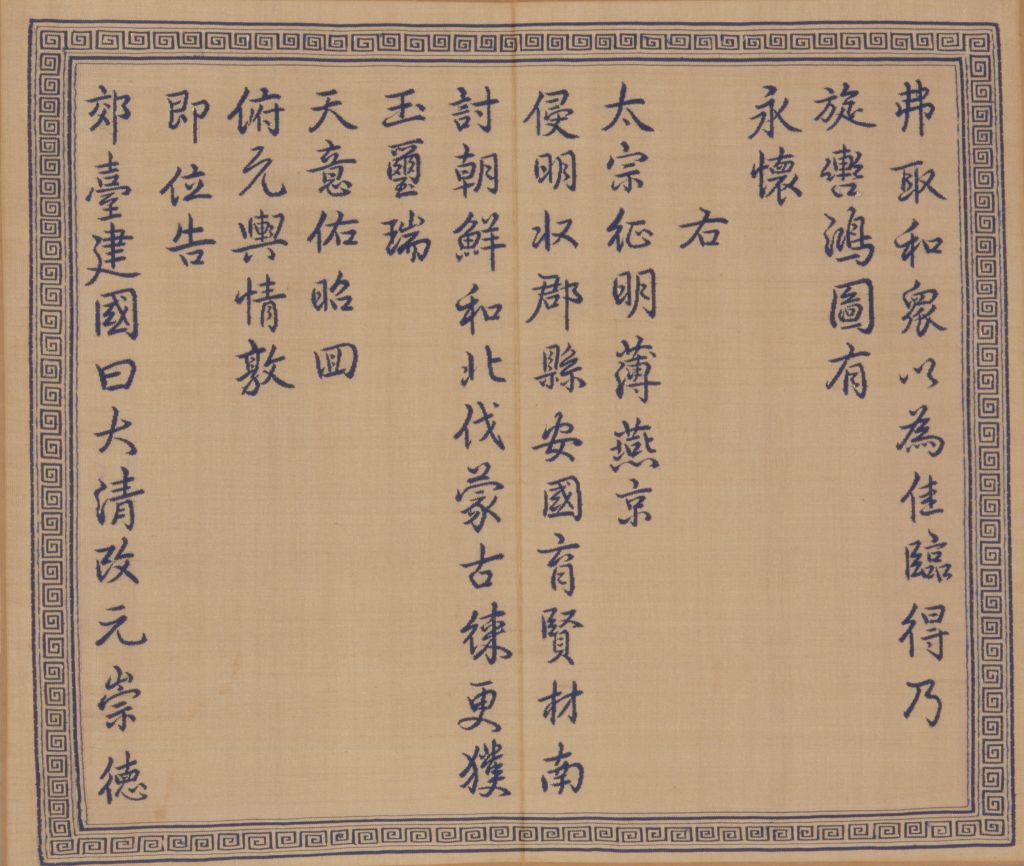 弗取和衆以為佳臨得乃
旋轡鴻圖有
永懷
右
太宗征明薄燕京
侵明收郡縣安國育賢材南
討朝鮮和北伐蒙古徠更獲
玉璽瑞
天意佑昭回
俯允輿情敦
即位告
郊臺建國曰大清改元崇德